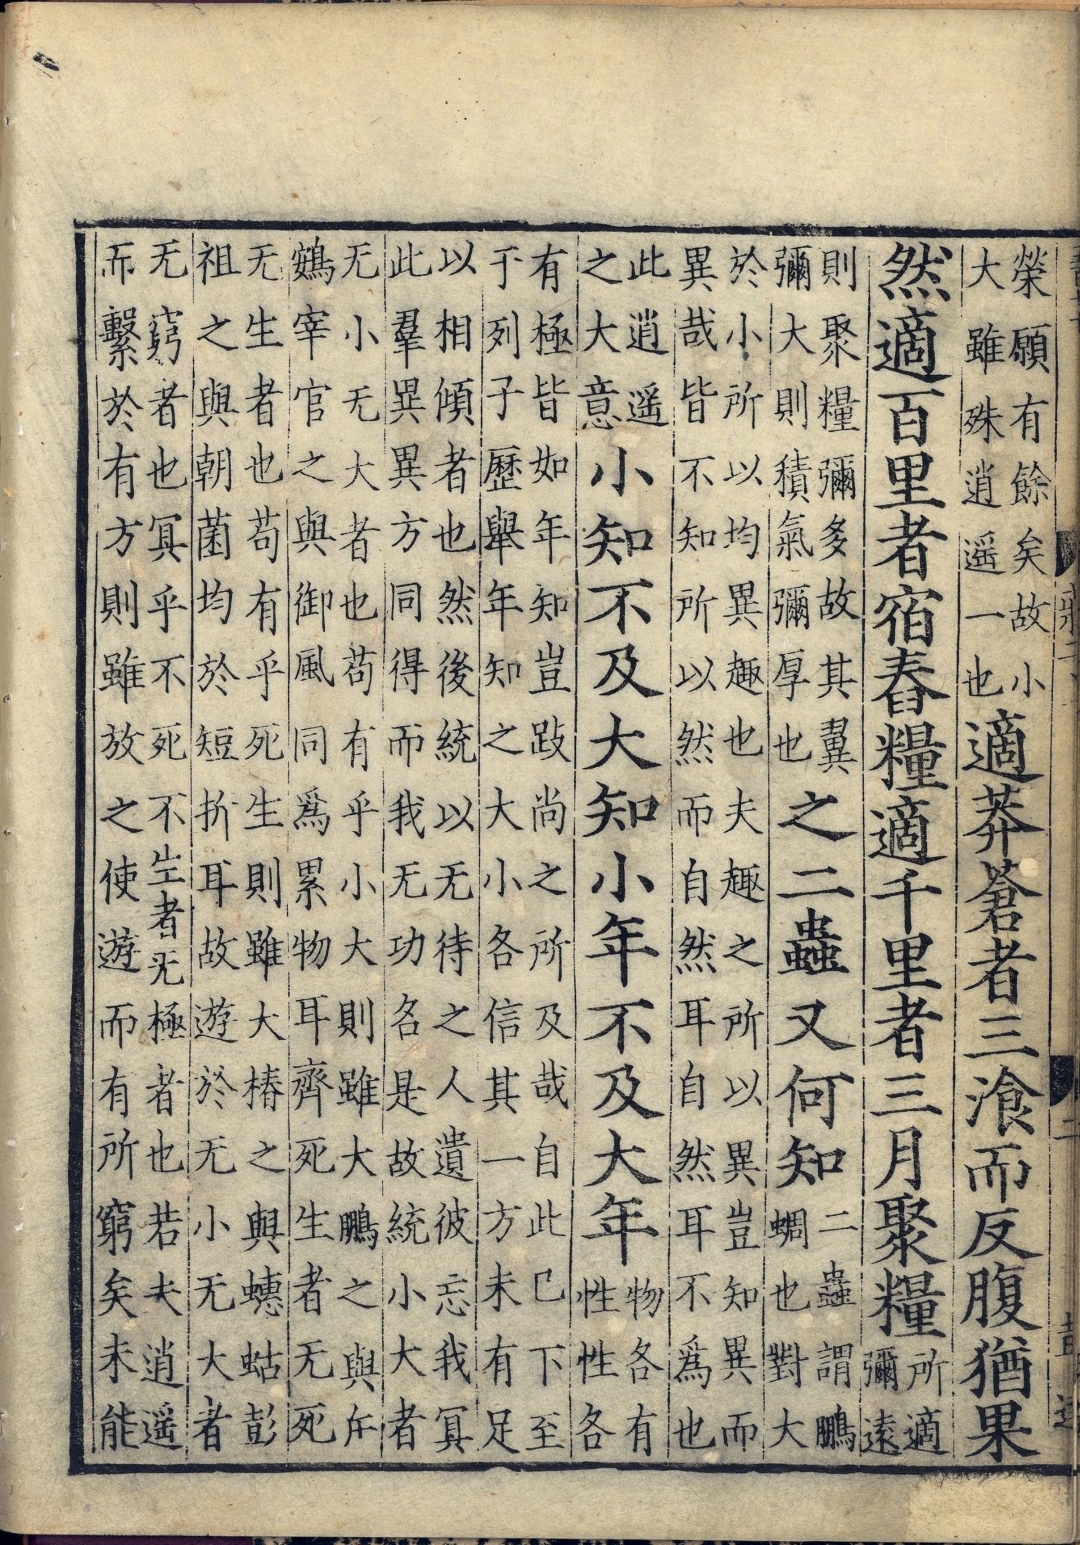 榮願有餘矣故小
大雖殊逍遥一也
適莽蒼者三飡而反腹猶果
然適百里者宿舂糧適千里者三月聚糧
所適
彌遠
則聚糧彌多故其翼
彌大則積氣彌厚也
之二蟲又何知
二蟲謂鵬
蜩也對大
於小所以均異趣也夫趣之所以異豈知異而
異哉皆不知所以然而自然耳自然耳不爲也
此逍遥
之大意
小知不及大知小年不及大年
物各有
性性各
有極皆如年知豈跂尚之所及哉自此已下至
于列子歷舉年知之大小各信其一方未有足
以相傾者也然後統以无待之人遺彼忘我冥
此羣異異方同得而我无功名是故統小大者
无小无大者也苟有乎小大則雖大鵬之與斥
鷃宰官之與御風同爲累物耳齊死生者无死
无生者也苟有乎死生則雖大椿之與蟪蛄彭
祖之與朝菌均於短折耳故遊於无小无大者
无窮者也冥乎不死不生者无極者也若夫逍遥
而繫於有方則雖放之使遊而有所窮矣未能